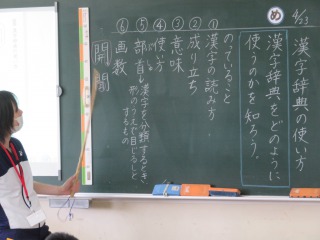 4/23
漢字辞典の使い方
め
漢字辞典をどのように
使うのかを知ろう。
のっていること
①漢字の読み方
②成り立ち
③意味
④使い方
⑤部首
漢字を分類するとき
形のうえで目じるしと
するもの
⑥画数
開